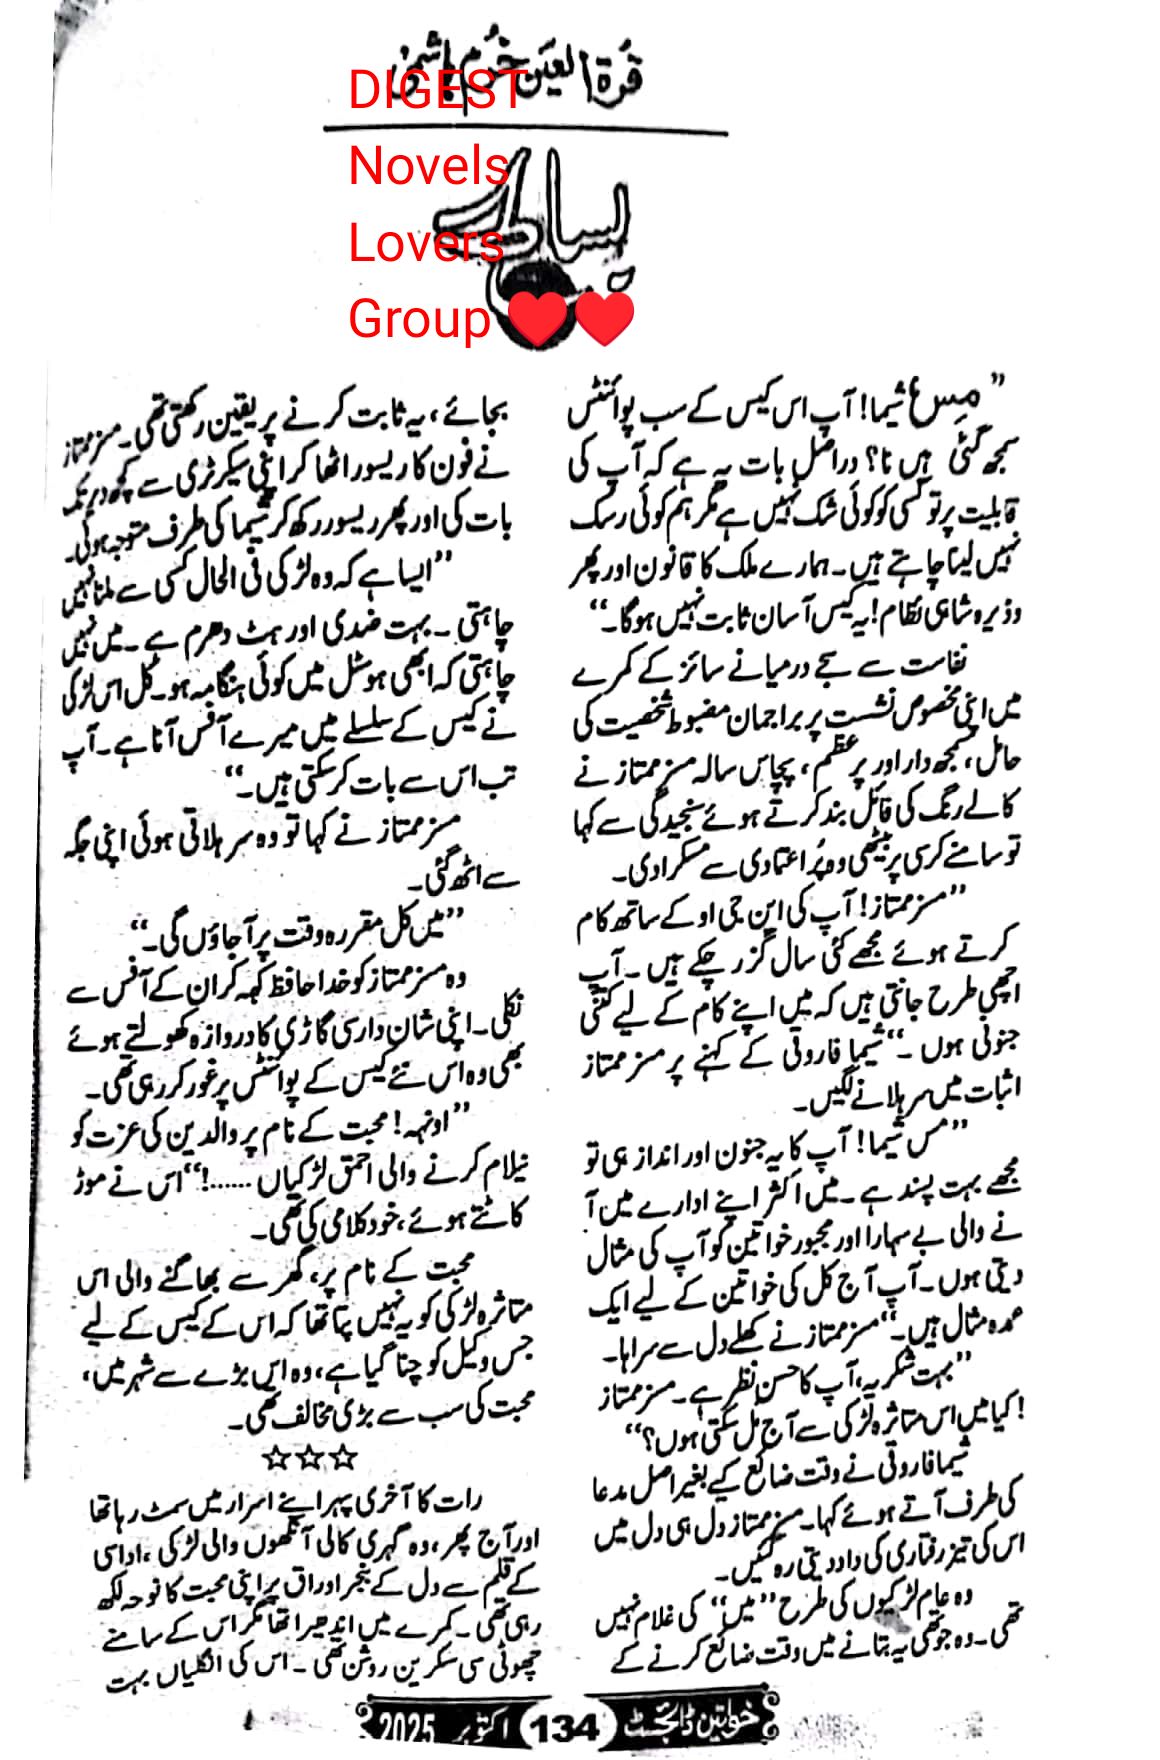 قرۃ العین خرم ہاشمی
DIGEST
Novels
Lovers
Group ❤❤
”مس شیما! آپ اس کیس کے سب پوائنٹس
سمجھ گئی ہیں نا؟ دراصل بات یہ ہے کہ آپ کی
قابلیت پر تو کسی کو کوئی شک نہیں ہے مگر ہم کوئی رسک
نہیں لینا چاہتے ہیں۔ ہمارے ملک کا قانون اور پھر
وڈیرہ شاہی نظام! یہ کیس آسان ثابت نہیں ہوگا۔“
نفاست سے سجے درمیانے سائز کے کمرے
میں اپنی مخصوص نشست پر براجمان مضبوط شخصیت کی
حامل، سمجھ دار اور پر عظم، پچاس سالہ مسز ممتاز نے
کالے رنگ کی فائل بند کرتے ہوئے سنجیدگی سے کہا
تو سامنے کرسی پر بیٹھی وہ پُر اعتمادی سے مسکرا دی۔
”مسز ممتاز! آپ کی این جی او کے ساتھ کام
کرتے ہوئے مجھے کئی سال گزر چکے ہیں۔ آپ
اچھی طرح جانتی ہیں کہ میں اپنے کام کے لیے کتنی
جنونی ہوں۔“ شیما فاروقی کے کہنے پر مسز ممتاز
اثبات میں سر ہلانے لگیں۔
”مس شیما! آپ کا یہ جنون اور انداز ہی تو
مجھے بہت پسند ہے۔ میں اکثر اپنے ادارے میں آ
نے والی بے سہارا اور مجبور خواتین کو آپ کی مثال
دیتی ہوں۔ آپ آج کل کی خواتین کے لیے ایک
عمدہ مثال ہیں۔“ مسز ممتاز نے کھلے دل سے سراہا۔
”بہت شکریہ، آپ کا حسن نظر ہے۔ مسز ممتاز
! کیا میں اس متاثرہ لڑکی سے آج مل سکتی ہوں؟“
شیما فاروقی نے وقت ضائع کیے بغیر اصل مدعا
کی طرف آتے ہوئے کہا۔ مسز ممتاز دل ہی دل میں
اس کی تیز رفتاری کی داد دیتی رہ گئیں۔
وہ عام لڑکیوں کی طرح ”میں“ کی غلام نہیں
تھی۔ وہ جو تھی یہ بتانے میں وقت ضائع کرنے کے
بجائے، یہ ثابت کرنے پر یقین رکھتی تھی۔ مسز ممتاز
نے فون کا ریسور اٹھا کر اپنی سیکرٹری سے کچھ دیر تک
بات کی اور پھر ریسور رکھ کر شیما کی طرف متوجہ ہوئی۔
”ایسا ہے کہ وہ لڑکی فی الحال کسی سے ملنا نہیں
چاہتی۔ بہت ضدی اور ہٹ دھرم ہے۔ میں نہیں
چاہتی کہ ابھی ہوسٹل میں کوئی ہنگامہ ہو۔ کل اس لڑکی
نے کیس کے سلسلے میں میرے آفس آنا ہے۔ آپ
تب اس سے بات کر سکتی ہیں۔“
مسز ممتاز نے کہا تو وہ سر ہلاتی ہوئی اپنی جگہ
سے اٹھ گئی۔
”میں کل مقررہ وقت پر آجاؤں گی۔“
وہ مسز ممتاز کو خدا حافظ کہہ کر ان کے آفس سے
نکلی۔ اپنی شان داری گاڑی کا دروازہ کھولتے ہوئے
بھی وہ اس نئے کیس کے پوائنٹس پر غور کر رہی تھی۔
”اونہہ! محبت کے نام پر والدین کی عزت کو
نیلام کرنے والی احمق لڑکیاں ......!“ اس نے موڑ
کاٹتے ہوئے، خود کلامی کی تھی۔
محبت کے نام پر، گھر سے بھاگنے والی اس
متاثرہ لڑکی کو یہ نہیں پتا تھا کہ اس کے کیس کے لیے
جس وکیل کو چنا گیا ہے، وہ اس بڑے سے شہر میں،
محبت کی سب سے بڑی مخالف تھی۔
☆☆☆
رات کا آخری پہر اپنے اسرار میں سمٹ رہا تھا
اور آج پھر، وہ گہری کالی آنکھوں والی لڑکی، اداسی
کے قلم سے دل کے بنجر اوراق پر اپنی محبت کا نوحہ لکھ
رہی تھی۔ کمرے میں اندھیرا تھا مگر اس کے سامنے
چھوٹی سی سکرین روشن تھی۔ اس کی انگلیاں بہت
خواتین ڈائجسٹ 134 اکتوبر 2025